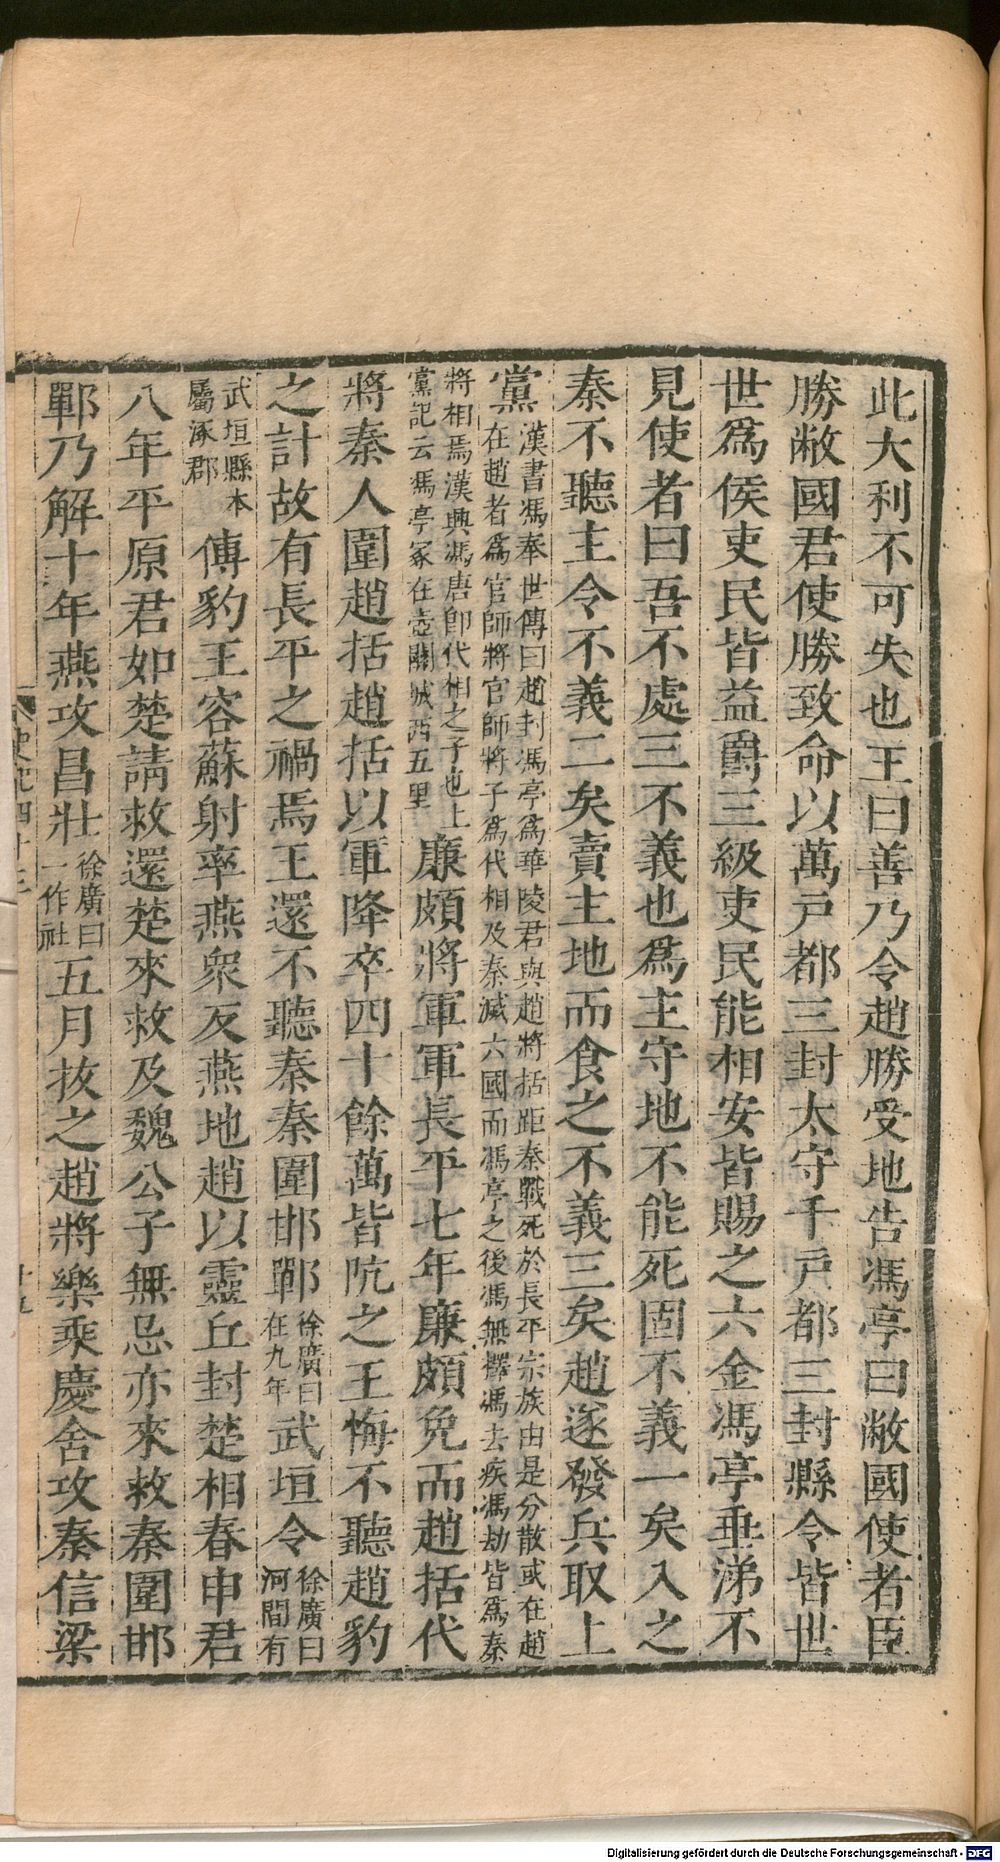 此大利不可失也王曰善乃令趙勝受地告馮亭曰敝國使者臣
勝敝國君使勝致命以萬戶都三封太守千戶都三封縣令皆世
世爲侯吏民皆益爵三級吏民能相安皆賜之六金馮亭垂涕不
見使者曰吾不處三不義也爲主守地不能死固不義一矣入之
秦不聽主令不義二矣賣主地而食之不義三矣趙遂發兵取上
黨
漢書馮奉世傳曰趙封馮亭爲華陵君與趙將括距秦戰死於長平宗族由是分散或在趙
在趙者爲官師將官師將子爲代相及秦滅六國而馮亭之後馮無擇馮去疾馮劫皆爲秦
將相焉漢興馮唐卽代相之子也上
黨記云馮亭冢在壺關城西五里
廉頗將軍軍長平七年廉頗免而趙括代
將秦人圍趙括趙括以軍降卒四十餘萬皆阬之王悔不聽趙豹
之計故有長平之禍焉王還不聽秦秦圍邯鄲
徐廣曰
在九年
武垣令
徐廣曰
河間有
武垣縣本
屬涿郡
傅豹王容蘇射率燕衆反燕地趙以靈丘封楚相春申君
八年平原君如楚請救還楚來救及魏公子無忌亦來救秦圍邯
鄲乃解十年燕攻昌壯
徐廣曰
一作社
五月拔之趙將樂乘慶舍攻秦信梁
史記四十三
十五
Digitalisierung gefördert durch die Deutsche Forschungsgemeinschaft - DFG